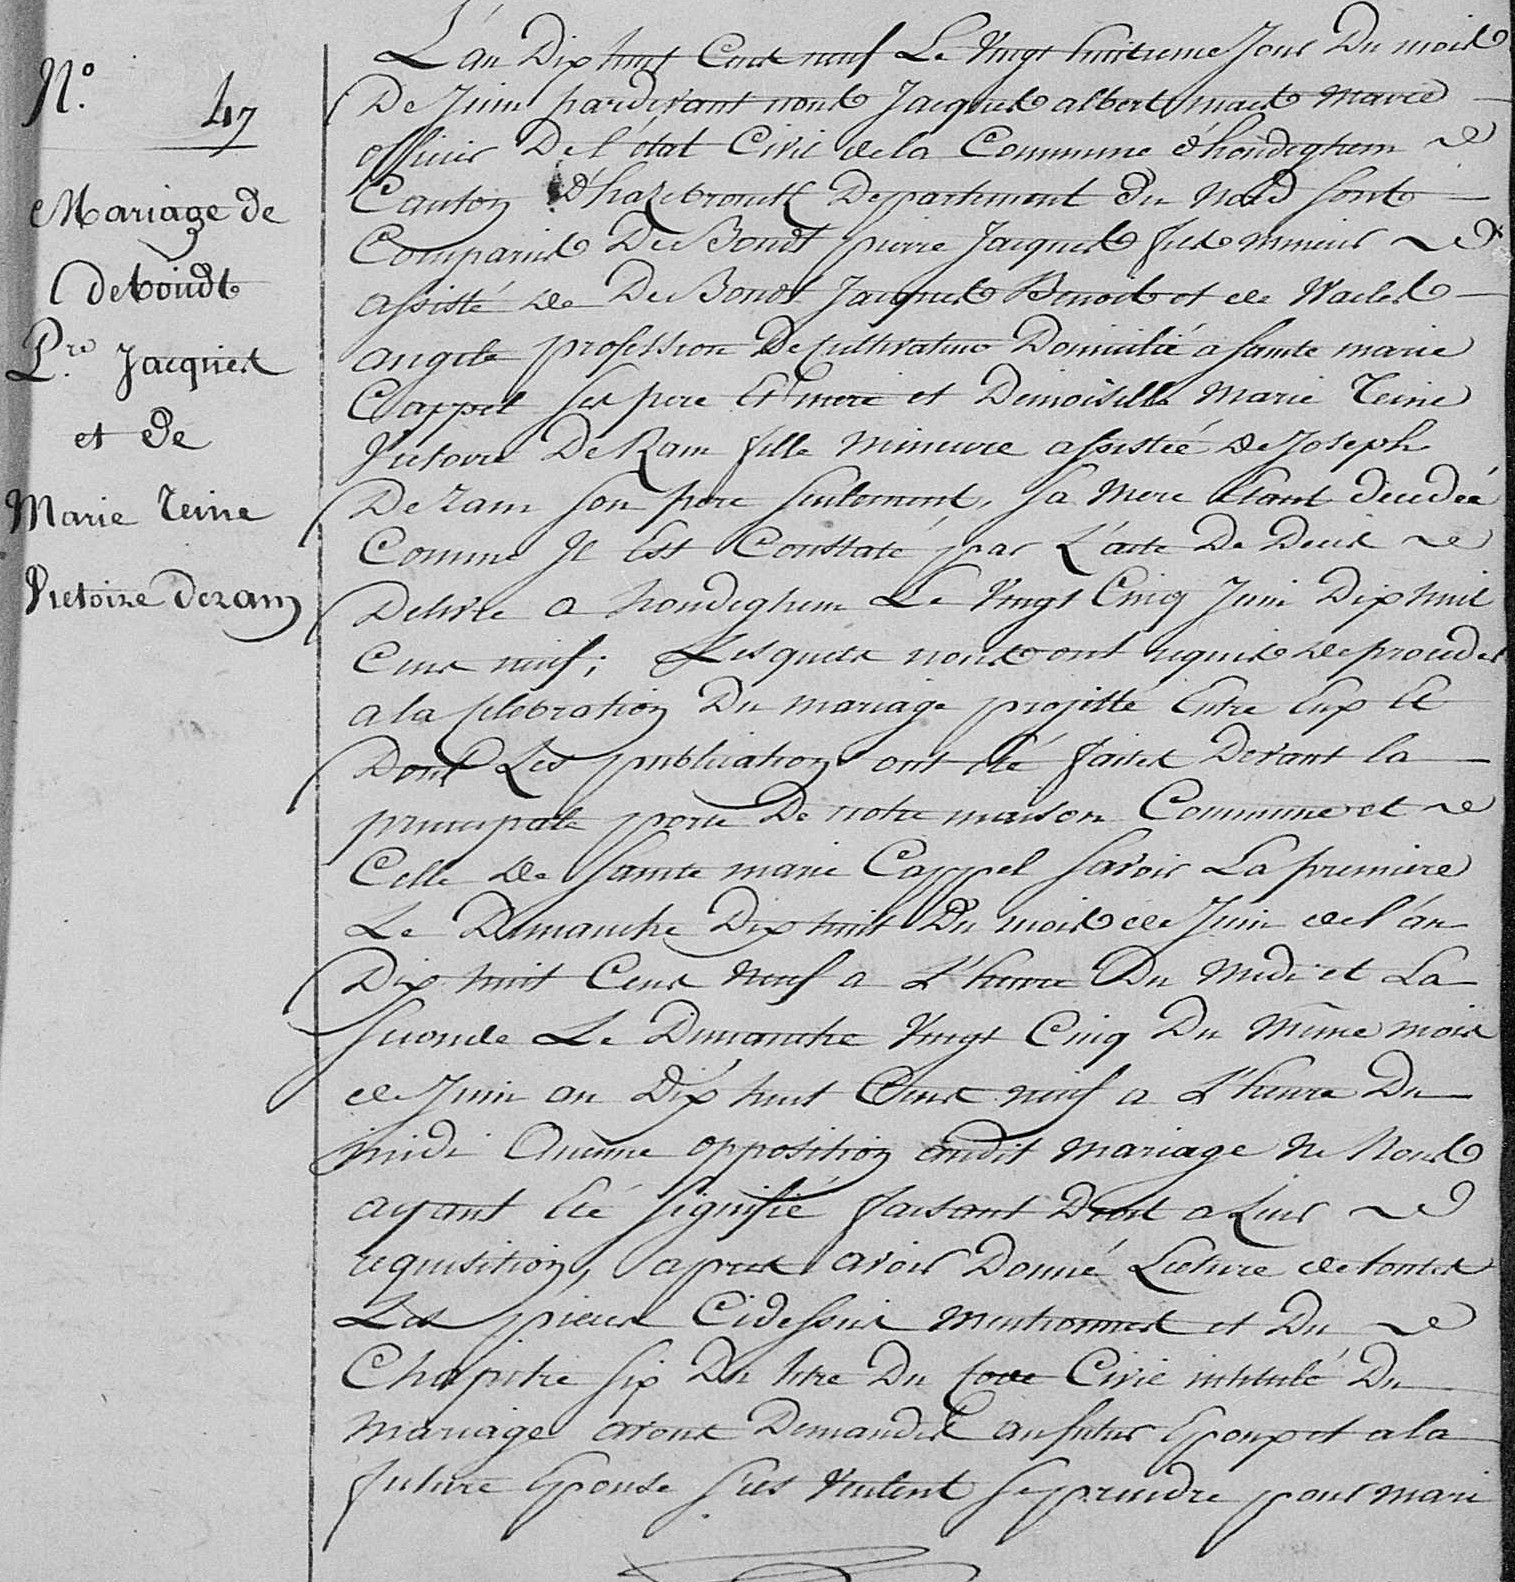 N.° 47
Mariage de
deboudt
P.re Jacques
et de
Marie Teine
Victoire deram
L'an Dix huit Cent neuf Le Vingt huitieme Jour Du mois
De Juin pardevant nous Jacques albert maire
officier De l'état Civil de la Commune d'hondeghem
Canton D'hazebrouck Departement du Nord sont
Comparus De Boudt pierre Jacques fils mineur
assisté de De Boudt Jacques Benoit et de Waeles
angele profession De Cultivateur Domicilié a sainte marie
Cappel ses pere Et mere et Demoiselle Marie Teine
Victoire De Ram fille mineure assistée de Joseph
De ram son pere seulement, sa mere étant decedée
Comme Il Est Constaté par L'acte De Deces
Delivré a hondeghem Le Vingt Cinq Juin Dix huit
Cens neuf; Lesquels nous ont requis de proceder
a la Celebration Du mariage projetté Entre Eux Et
Dont Les publication ont été faites Devant la
principale porte De notre maison Commune et
Celle de Sainte marie Cappel savoir La premiere
Le Dimanche Dix huit Du mois de Juin de l'an
Dix huit Cens neuf a L'heure Du midi et La
seconde Le Dimanche Vingt Cinq Du Même mois
de Juin an Dix huit Cens neuf a L'heure Du
midi Aucune opposition audit mariage ne Nous
ayant Eté signifié faisant Droit a Leur
requisition, apres avoir Donné Lecture de toutes
Les pieces Cidessus mentionnes et Du
Chapitre six Du titre Du Code Civil intitulé Du
mariage avons Demandés au futur Epoux et a la
future Epouse s'ils Veulent se prendre pour mari